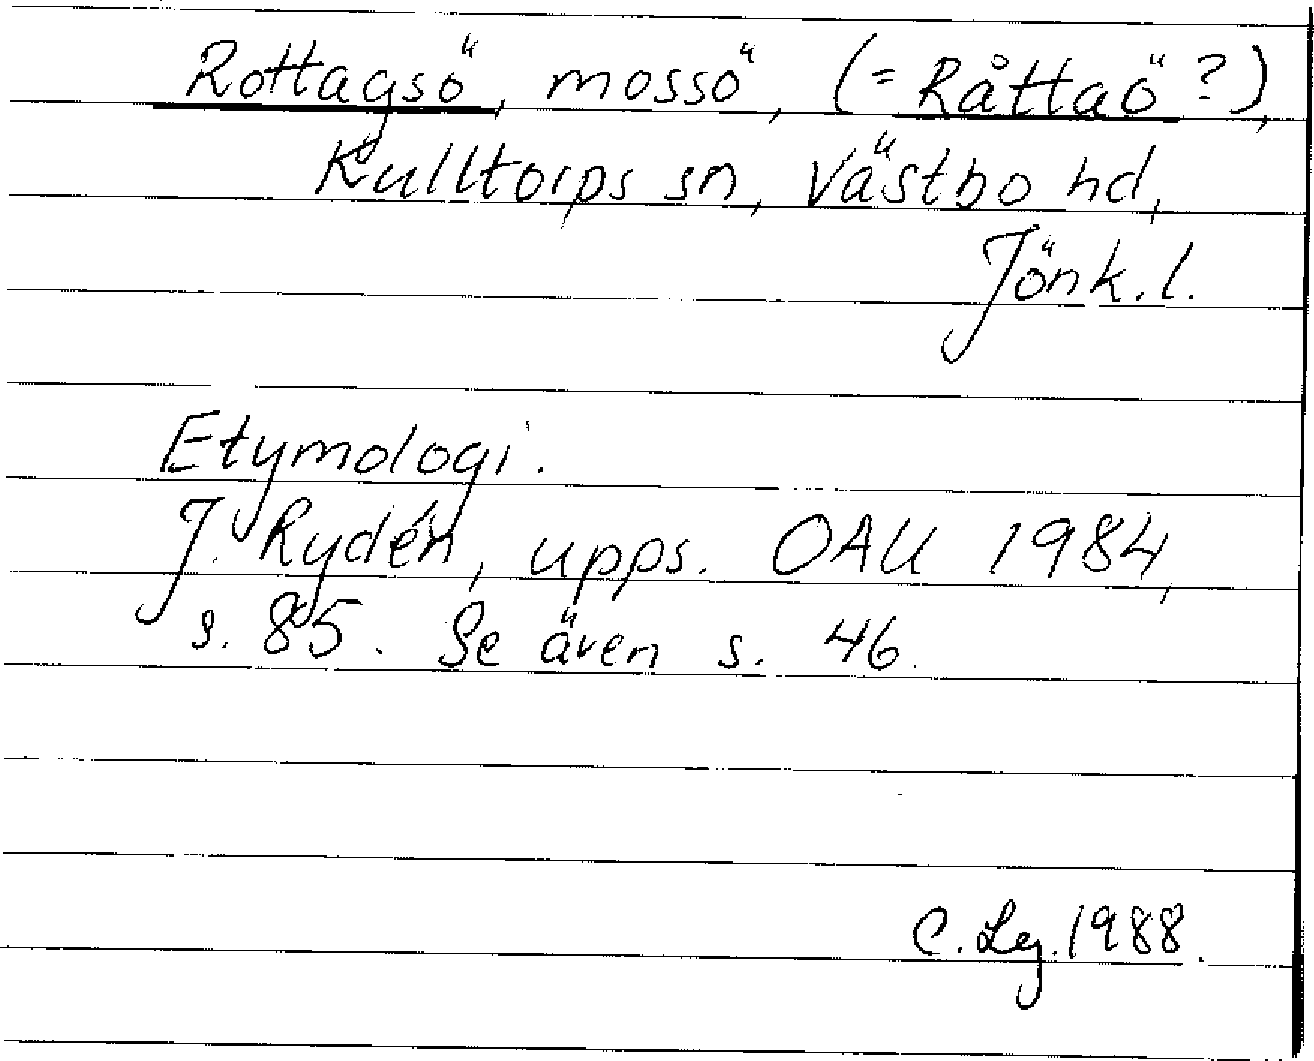 Rottagsö, mossö, (= Råttaö?),
Kulltorps sn, Västbo hd,
Jönk. l.
Etymologi.
J. Rydén, upps. OAU 1984,
s. 85. Se även s. 46.
C. Leg. 1988.